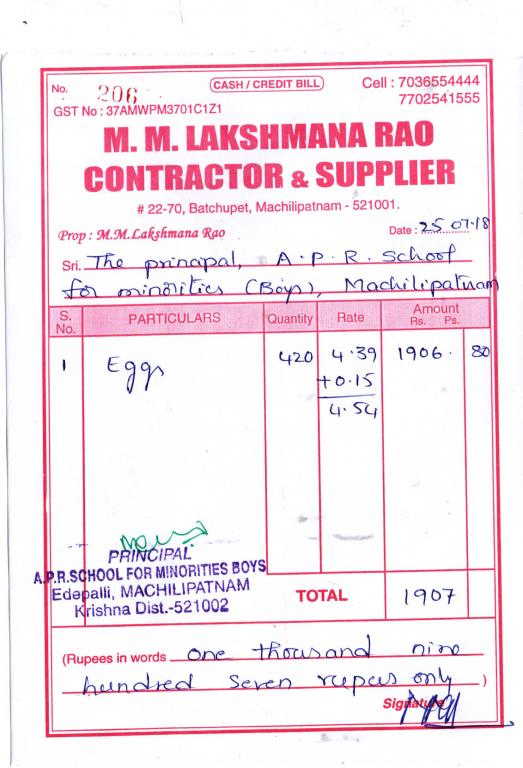 No. 206 CASH / CREDIT BILL Cell : 7036554444
7702541555
GST No : 37AMWPM3701C1Z1
M. M. LAKSHMANA RAO
CONTRACTOR & SUPPLIER
# 22-70, Batchupet, Machilipatnam - 521001.
Prop : M.M.Lakshmana Rao Date : 25.07.18
Sri. The principal, A.P.R. School
for minorities (Boys), Machilipatnam
S. No. PARTICULARS Quantity Rate Amount Rs. Ps.
1 Eggs 420 4.39 1906. 80
+0.15
4.54
PRINCIPAL
A.P.R.SCHOOL FOR MINORITIES BOYS
Edepalli, MACHILIPATNAM
Krishna Dist.-521002
TOTAL 1907
(Rupees in words one thousand nine
hundred seven rupees only )
Signature